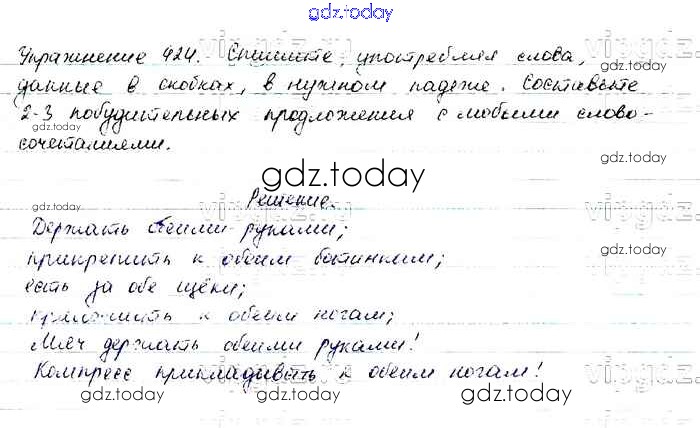 gdz.today
Упражнение 424. Спишите, употребляя слова,
данные в скобках, в нужном падеже. Составьте
2-3 побудительных предложения с любыми слово-
сочетаниями.
gdz.today
Решение.
Держать обеими руками;
прикрепить к обеим ботинкам;
есть за обе щёки;
приложить к обеим ногам;
Мяч держать обеими руками!
Компресс прикладывать к обеим ногам!
gdz.today
gdz.today
gdz.today
gdz.today
gdz.today
gdz.today
gdz.today
gdz.today